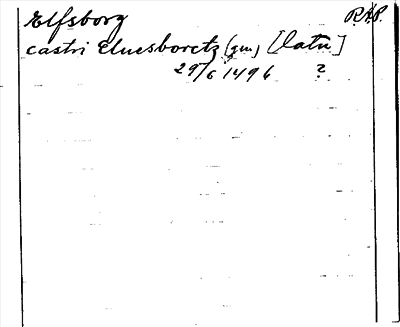 Elfsborg R.A.P.
castri Eluesboretz (gen) [latin]
29/6 1496 ?